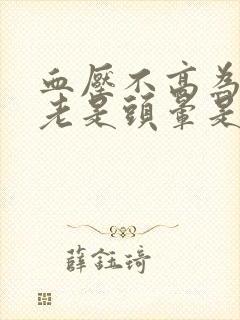 血壓不高為
老是頭暈是
薛鈺琦